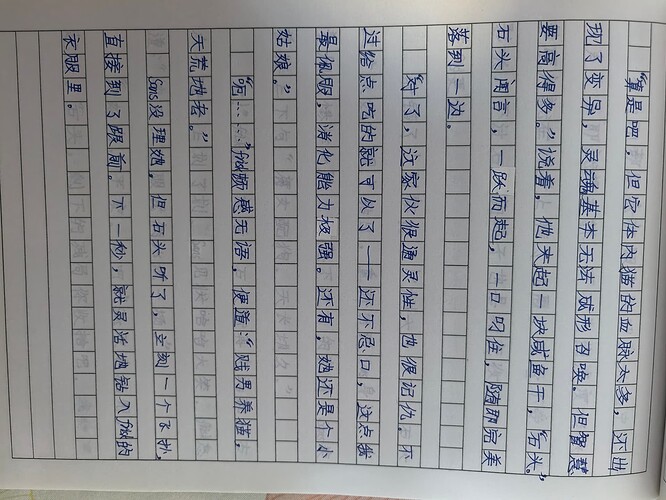 “算是吧，但它体内猫的血脉太多，还出
现了变异，灵魂基本无法成形召唤。但智慧
要高得多。”说着，他夹起一块咸鱼干，“石头。”
石头闻言，一跃而起，一口叼住，随即完美
落到一边。
“对了，这家伙很通灵性，也很记仇，不
过给点吃的就可以了——还不忌口，这点我
最佩服，消化能力极强。还有，她还是个小
姑娘。”
“呃……”顿感无语，便道：“贱男养猫，
天荒地老。”
没理她，但石头听了，立刻一个飞扑，
直接到了跟前。下一秒，就灵活地钻入的
衣服里。